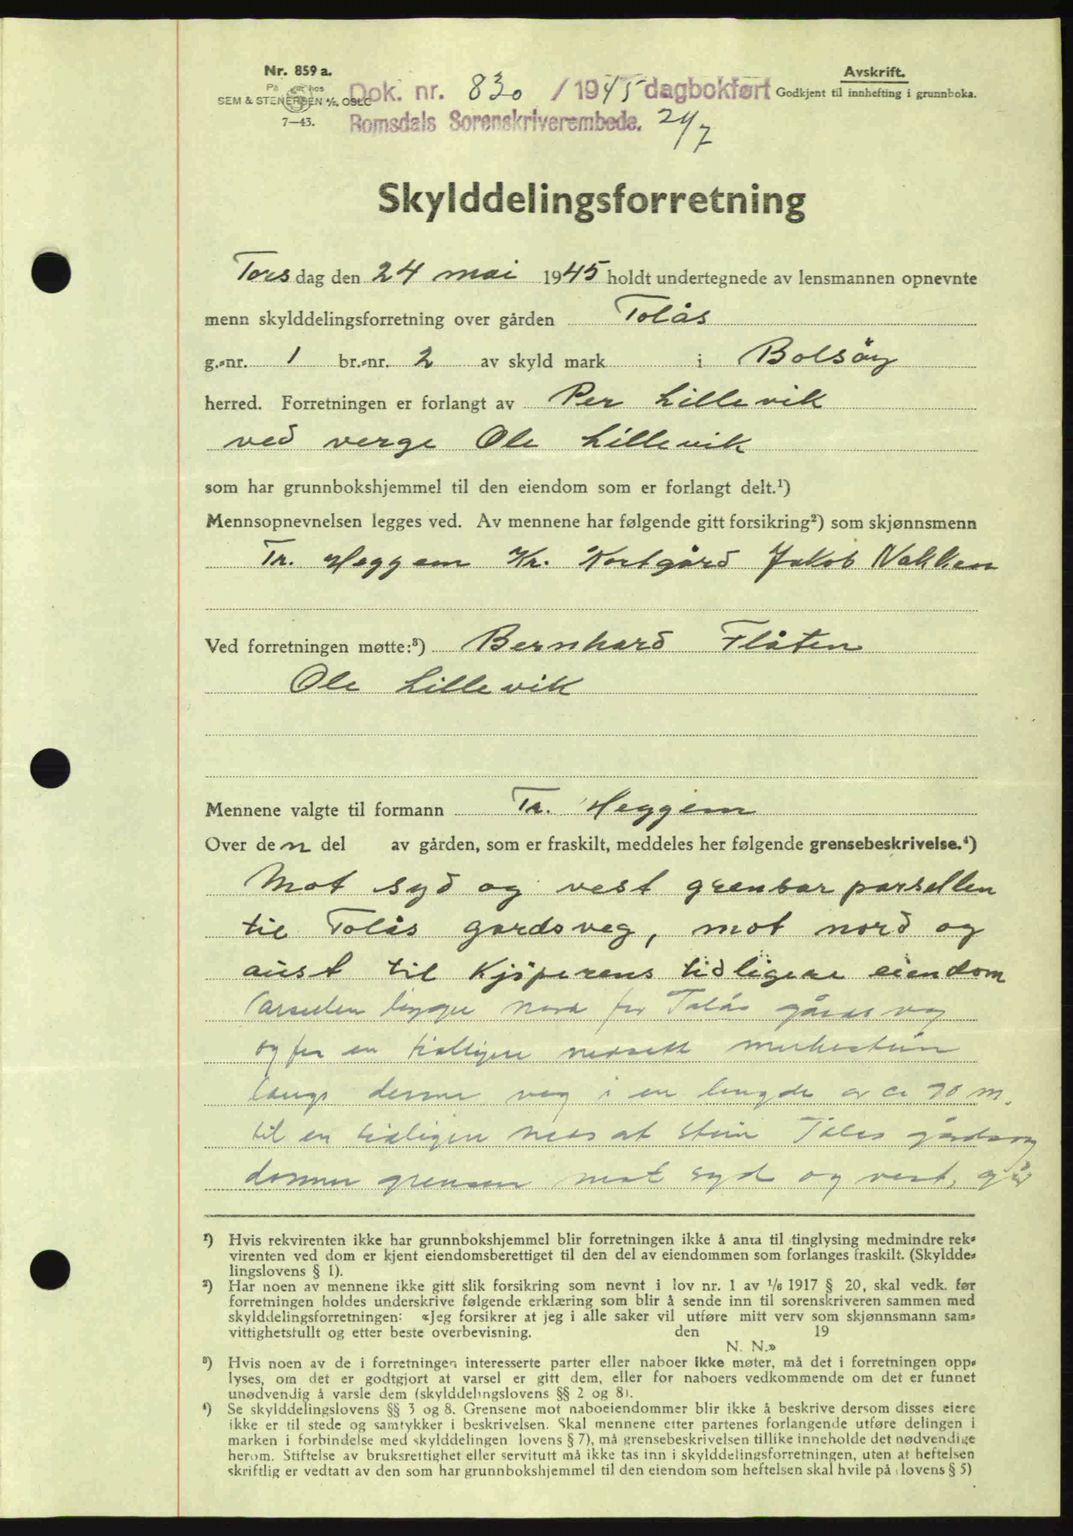 Nr. 859 a.
SEM & STENERSEN A/S, OSLO
7—43.
Dok. nr. 830 / 1945 dagbokført
Romsdals Sorenskriverembede. 24/7
Avskrift.
Godkjent til innhefting i grunnboka.
Skylddelingsforretning
Torsdag den 24 mai 1945 holdt undertegnede av lensmannen opnevnte
menn skylddelingsforretning over gården Tolås
g.-nr. 1 br.-nr. 2 av skyld mark i Bolsöy
herred. Forretningen er forlangt av Per Lillevik
ved verge Ole Lillevik
som har grunnbokshjemmel til den eiendom som er forlangt delt.¹)
Mennsopnevnelsen legges ved. Av mennene har følgende gitt forsikring²) som skjønnsmenn
Tr. Heggem Kr. Kortgård Jakob Nakken
Ved forretningen møtte:³) Bernhard Flåten
Ole Lillevik
Mennene valgte til formann Tr. Heggem
Over den del av gården, som er fraskilt, meddeles her følgende grensebeskrivelse.⁴)
Mot syd og vest grensar parsellen
til Tolås gardsveg, mot nord og
aust til Kjöperens tidligere eiendom
Parsellen ligger nord for Tolås gårdsveg
og fra en tidligere nedsatt merkestein
langs denne veg i en lengde av ca 70 m.
til en tidligere nedsatt stein Tolås gårdsveg
danner grensen mot syd og vest, går
¹) Hvis rekvirenten ikke har grunnbokshjemmel blir forretningen ikke å anta til tinglysing medmindre rek-
virenten ved dom er kjent eiendomsberettiget til den del av eiendommen som forlanges fraskilt. (Skyldde-
lingslovens § 1).
²) Har noen av mennene ikke gitt slik forsikring som nevnt i lov nr. 1 av 1/6 1917 § 20, skal vedk. før
forretningen holdes underskrive følgende erklæring som blir å sende inn til sorenskriveren sammen med
skylddelingsforretningen: «Jeg forsikrer at jeg i alle saker vil utføre mitt verv som skjønnsmann sam-
vittighetsfullt og etter beste overbevisning. den 19
N. N.»
³) Hvis noen av de i forretningen interesserte parter eller naboer ikke møter, må det i forretningen opp-
lyses, om det er godtgjort at varsel er gitt dem, eller for naboers vedkommende om det er funnet
unødvendig å varsle dem (skylddelingslovens §§ 2 og 8).
⁴) Se skylddelingslovens §§ 3 og 8. Grensene mot naboeiendommer blir ikke å beskrive dersom disses eiere
ikke er til stede og samtykker i beskrivelsen. Skal mennene etter partenes forlangende utføre delingen i
marken i forbindelse med skylddelingen lovens § 7), må grensebeskrivelsen tillike inneholde det nødvendige
herom. Stiftelse av bruksrettighet eller servitutt må ikke tas inn i skylddelingsforretningen, uten at heftelsen
skriftlig er vedtatt av den som har grunnbokshjemmel til den eiendom som heftelsen skal hvile på lovens § 5)